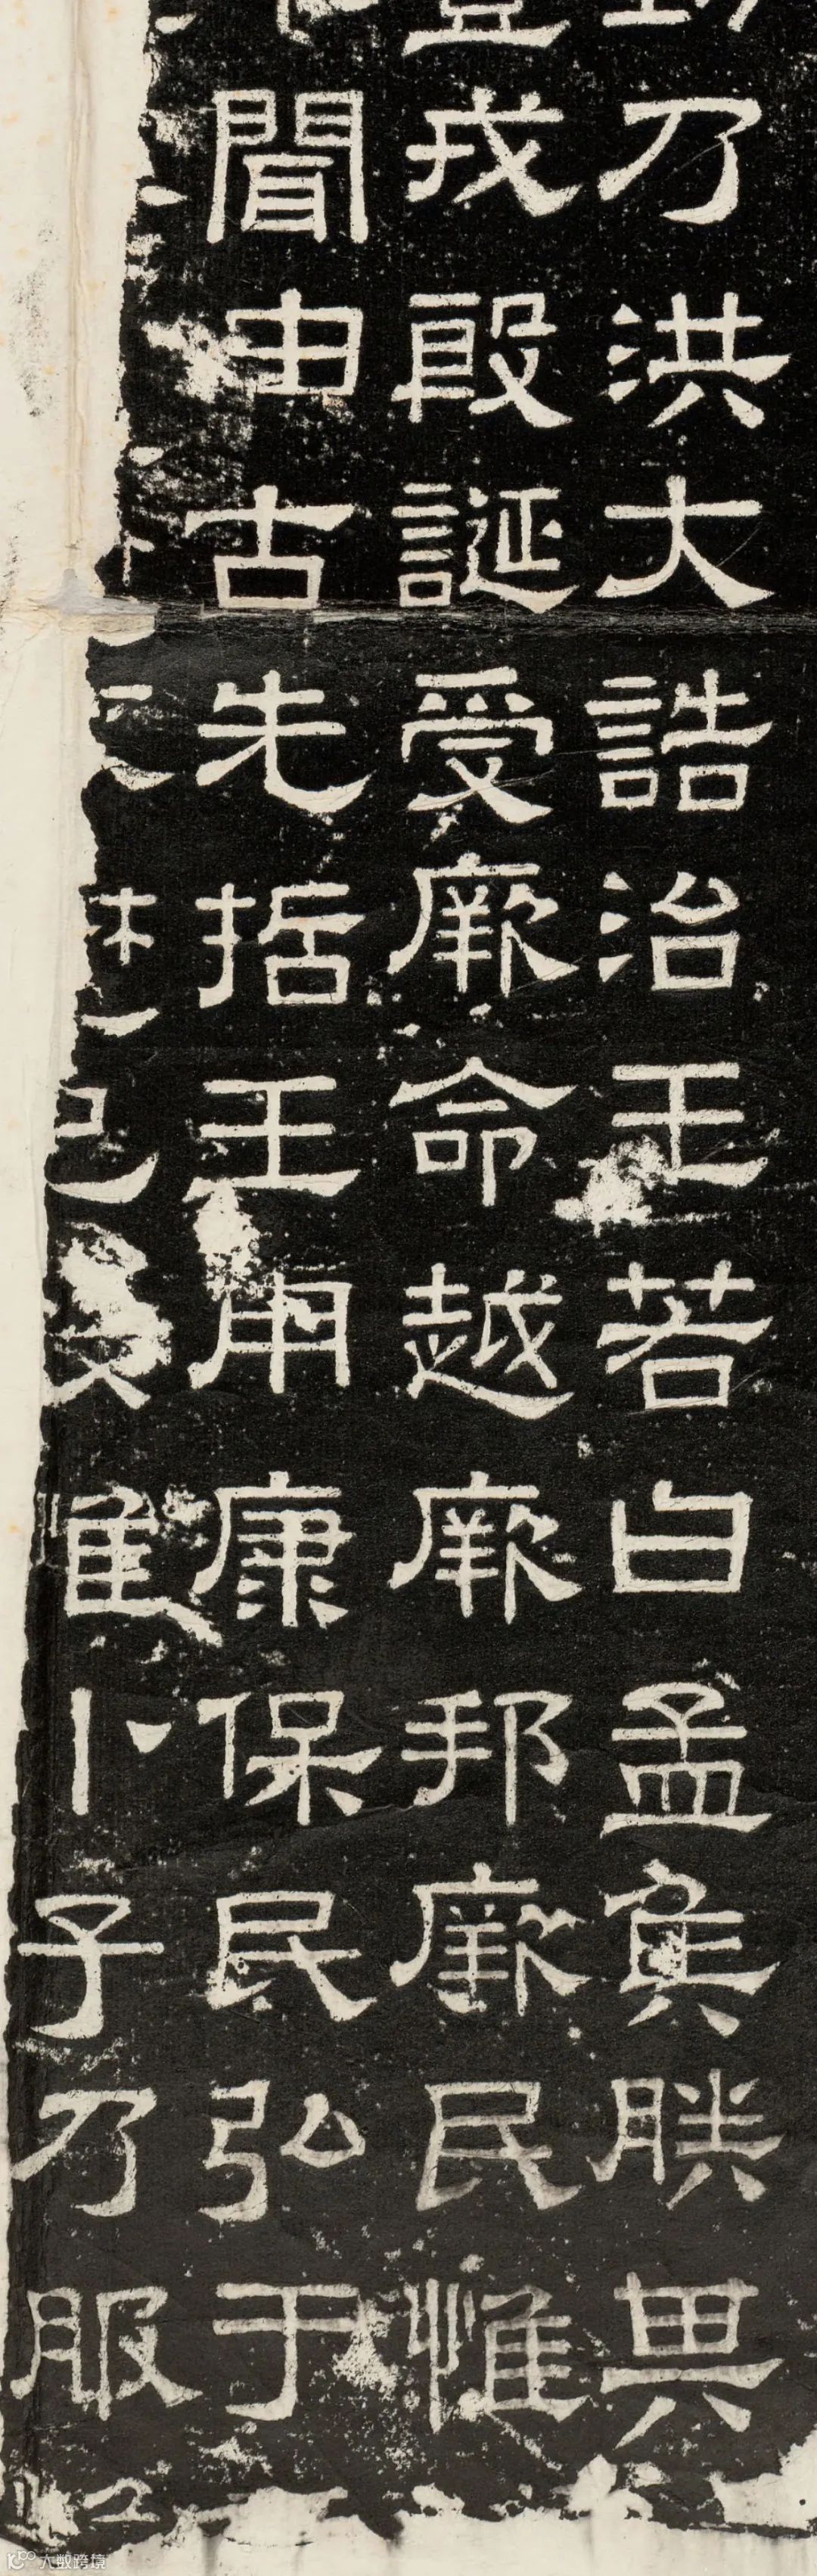 乃洪大誥治王若曰孟侯朕其
戎殷誕受厥命越厥邦厥民惟
聞由古先哲王用康保民弘于
已惟小子乃服
大数跨境